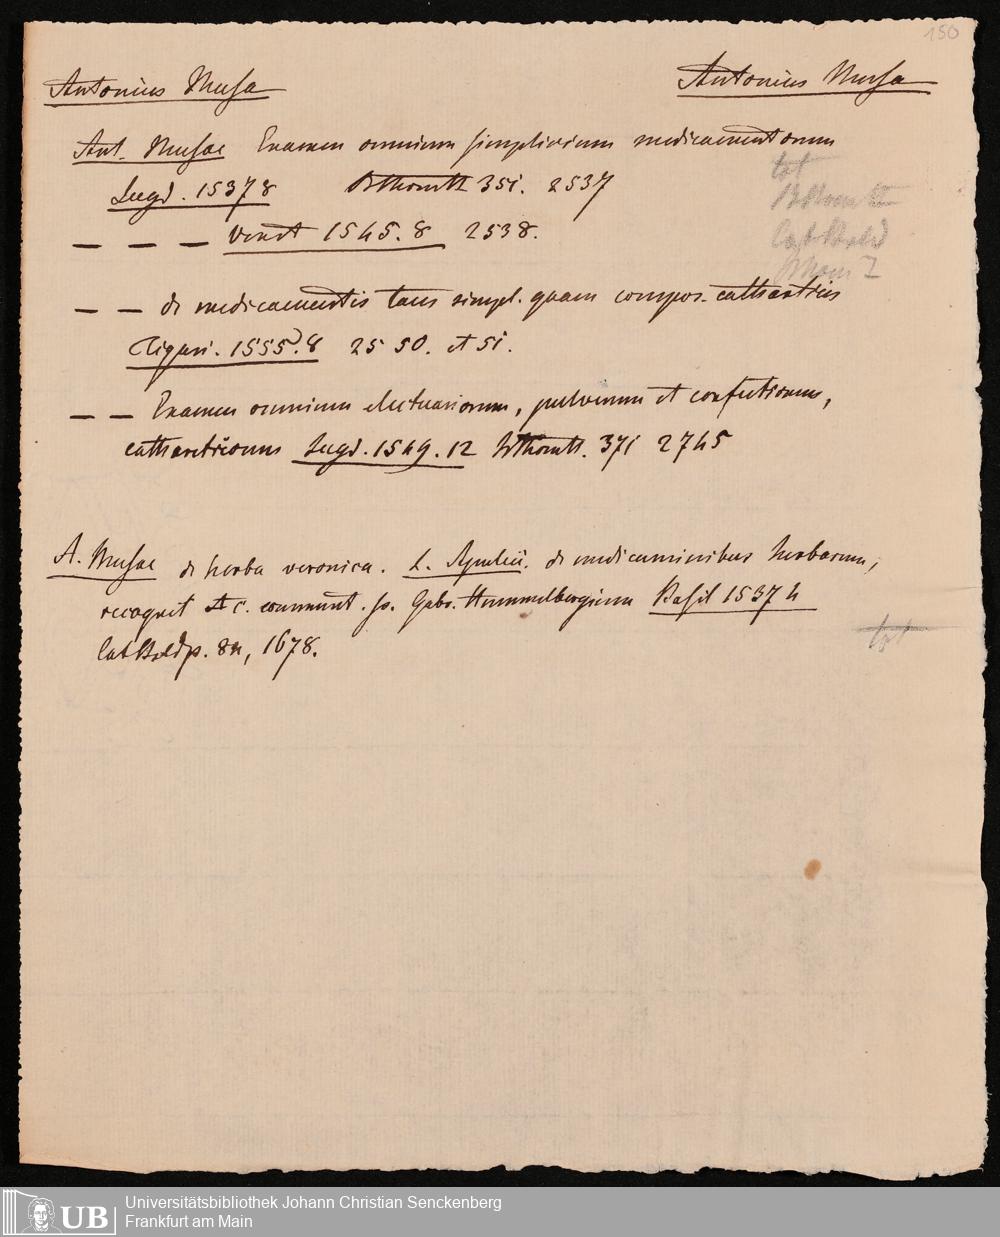 150
Antonius Musa
Antonius Musa
Ant. Musae Examen omnium simplicium medicamentorum
Lugd. 1537 8 BThomtt 351. 2537
— — — Venet 1545. 8 2538.
tot
BThomtt
Cat Bald
— — de medicamentis tam simpl. quam compos. catharticis
Tiguri. 1555. 8 2550. et 51.
— — Examen omnium electuariorum, pulverum et confectionum,
catharticorum Lugd. 1549. 12 BThomtt. 371 2745
A. Musae de herba veronica. L. Apuleii. de medicaminibus herbarum,
recognit & c. comment. p. Gabr. Hummelbergium Basil 1537 4
Cat Bald p. 84, 1678.
tot
Universitätsbibliothek Johann Christian Senckenberg
Frankfurt am Main
UB